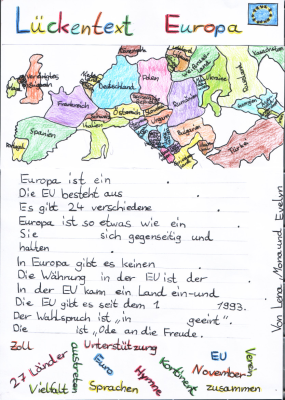 Lückentext Europa
Vereinigtes
Spanien
Portugal
Frankreich
Deutschland
Polen
Österreich
Italien
Ungarn
Rumänien
Bulgarien
Ukraine
Russland
Kasachstan
Türkei
Europa ist ein .
Die EU besteht aus .
Es gibt 24 verschiedene .
Europa ist so etwas wie ein .
Sie sich gegenseitig und
halten .
In Europa gibt es keinen .
Die Währung in der EU ist der .
In der EU kann ein Land ein-und .
Die EU gibt es seit dem 1 1993.
Der Wahlspruch ist „in geeint".
Die ist „Ode an die Freude.
Von Lena Mona und Evelyn
Zoll
Unterstützung
EU
Verein
27 Länder
austreten
Euro
Hymne
Kontinent
November
Vielfalt
Sprachen
zusammen